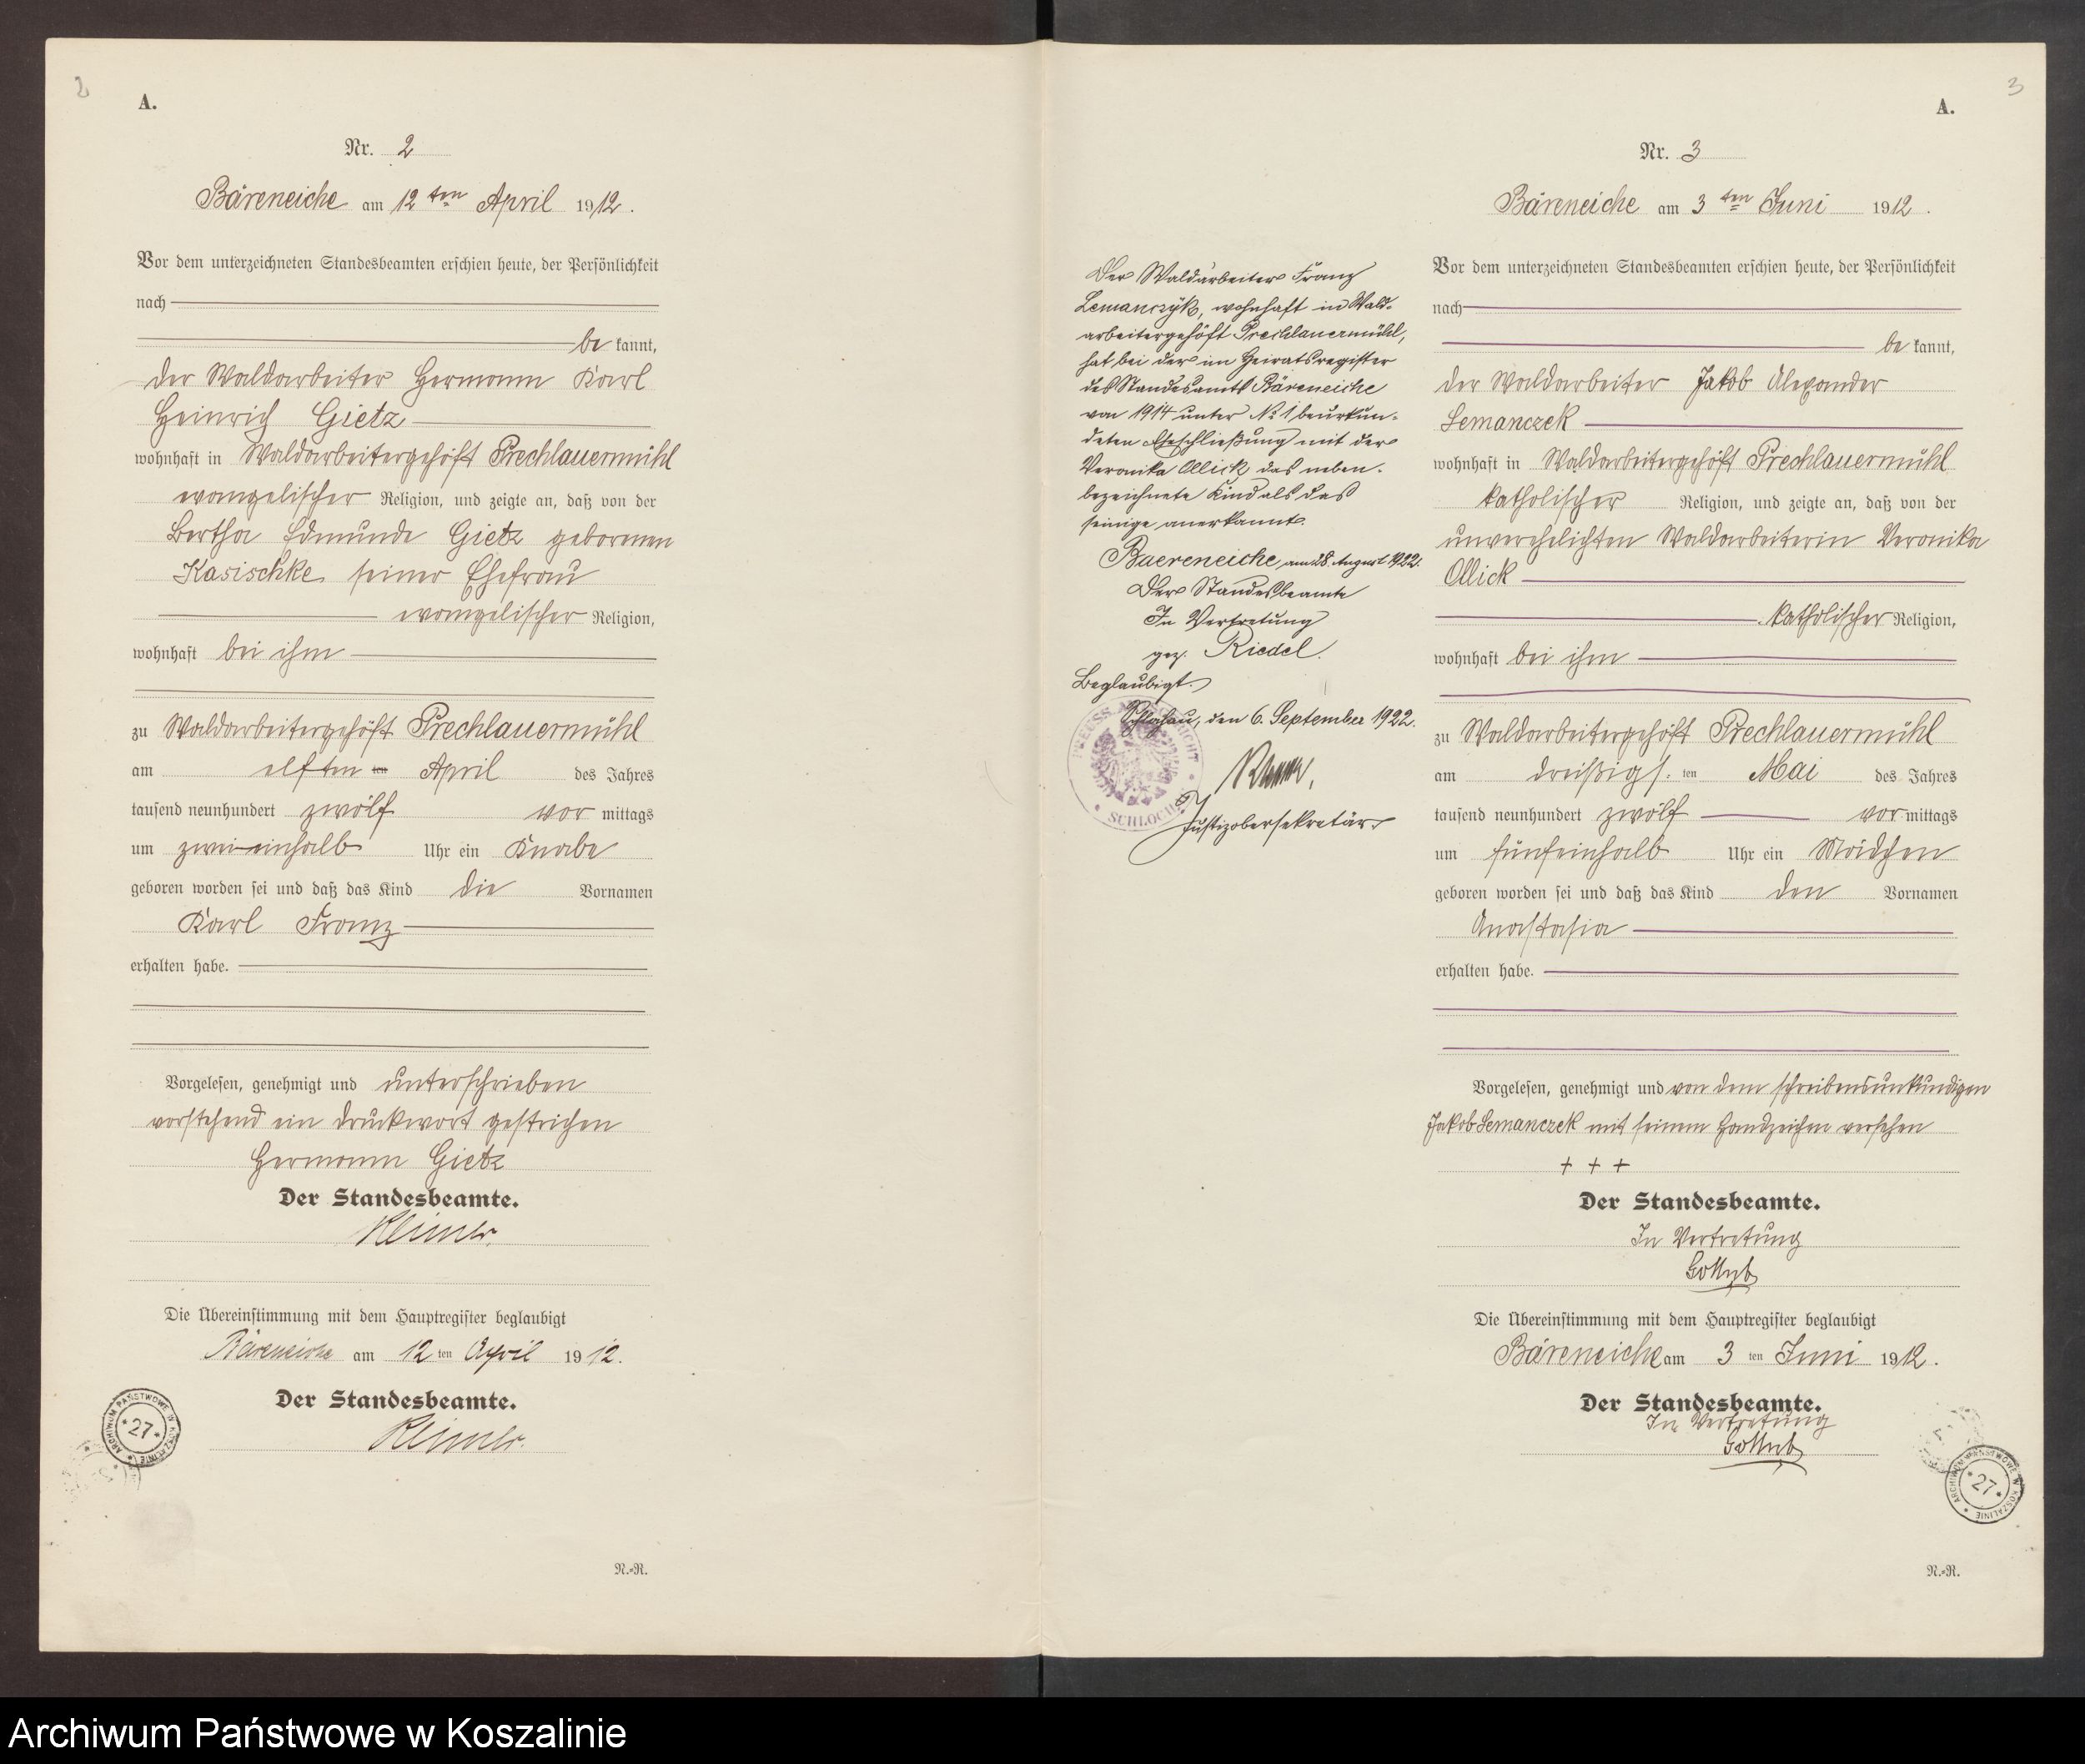 2
A.
Nr. 2
Bäreneiche am 12 ten April 1912.
Vor dem unterzeichneten Standesbeamten erschien heute, der Persönlichkeit
nach
be kannt,
der Waldarbeiter Hermann Karl
Heinrich Gietz
wohnhaft in Waldarbeitergehöft Prechlauermühl
evangelischer Religion, und zeigte an, daß von der
Bertha Edmunde Gietz geborenen
Kasischke seiner Ehefrau
evangelischer Religion,
wohnhaft bei ihm
zu Waldarbeitergehöft Prechlauermühl
am elften ten April des Jahres
tausend neunhundert zwölf vor mittags
um zweieinhalb Uhr ein Knabe
geboren worden sei und daß das Kind die Vornamen
Karl Franz
erhalten habe.
Vorgelesen, genehmigt und unterschrieben
vorstehend ein Druckwort gestrichen
Hermann Gietz
Der Standesbeamte.
Die Übereinstimmung mit dem Hauptregister beglaubigt
Bäreneiche am 12 ten April 1912.
Der Standesbeamte.
ARCHIWUM PAŃSTWOWE W KOSZALINIE
* 27 *
N.-R.
3
A.
Nr. 3
Bäreneiche am 3 ten Juni 1912.
Vor dem unterzeichneten Standesbeamten erschien heute, der Persönlichkeit
nach
be kannt,
der Waldarbeiter Jakob Alexander
Lemanczek
wohnhaft in Waldarbeitergehöft Prechlauermühl
katholischer Religion, und zeigte an, daß von der
unverehelichten Waldarbeiterin Veronika
Ollick
katholischer Religion,
wohnhaft bei ihm
zu Waldarbeitergehöft Prechlauermühl
am dreißigs. ten Mai des Jahres
tausend neunhundert zwölf vor mittags
um fünfeinhalb Uhr ein Mädchen
geboren worden sei und daß das Kind den Vornamen
Anastasia
erhalten habe.
Vorgelesen, genehmigt und von dem schreibensunkundigen
Jakob Lemanczek mit seinem Handzeichen versehen
+ + +
Der Standesbeamte.
In Vertretung
Die Übereinstimmung mit dem Hauptregister beglaubigt
Bäreneiche am 3 ten Juni 1912.
Der Standesbeamte.
In Vertretung
ARCHIWUM PAŃSTWOWE W KOSZALINIE
* 27 *
N.-R.
Der Waldarbeiter Franz
Lemanczyk, wohnhaft in Wald-
arbeitergehöft Prechlauermühl,
hat bei der im Heiratsregister
des Standesamts Bäreneiche
von 1914 unter No 1 beurkun-
deten Eheschließung mit der
Veronika Ollick das neben-
bezeichnete Kind als das
seinige anerkannt.
Baereneiche, am 28. August 1922.
Der Standesbeamte
In Vertretung
gez. Riedel.
Beglaubigt.
Schlochau, den 6. September 1922.
Justizobersekretär
Archiwum Państwowe w Koszalinie